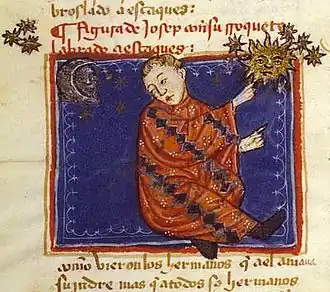 broslado a escaques:
¶ figura de Josep con su rroqueta
labrado a escaques:
como vieron los hermanos q̃ ael ama ua
su padre mas q̃ a todos sꝰ hermanos